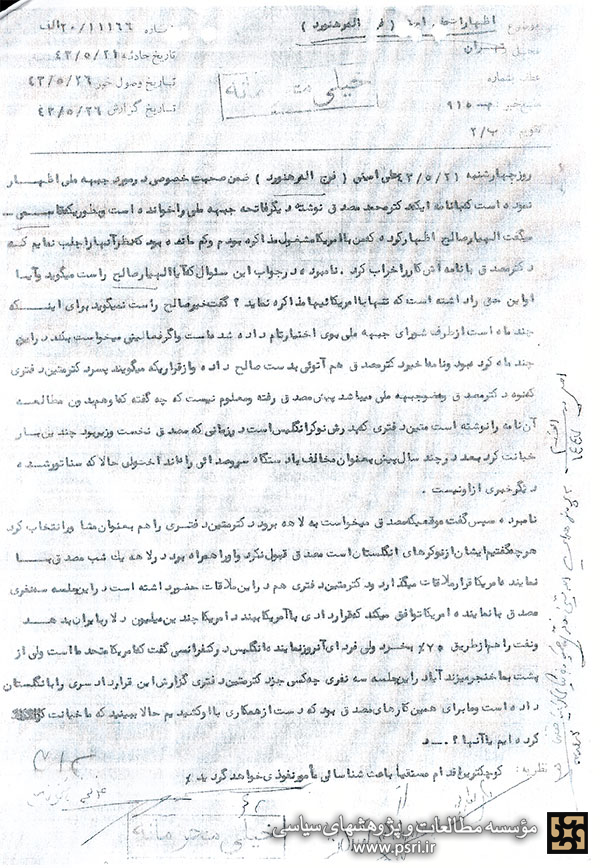 موضوع : اظهارات علی امینی ( فرج اله رهنورد ) شماره ۲۰/۱۱۱۶۶الف
تهران تاریخ حادثه ۴۳/۵/۲۱
عطف بشماره خیلی محرمانه تاریخ وصول خبر ۴۳/۵/۲۶
منبع خبر ۹۱۵ تاریخ گزارش ۴۳/۵/۲۶
تقویم ب/۲
روز چهارشنبه ۴۳/۵/۲۱ علی امینی ( فرج اله رهنورد ) ضمن صحبت خصوصی در مورد جبهه ملی اظهار
نموده است که با نامه ایکه دکتر محمد مصدق نوشته دیگر فاتحه جبهه ملی را خوانده است و بطوریکه
میگفت الهیار صالح اظهار کرده که من با امریکا مشغول مذاکره بودم و کم مانده بود که نظر آنها را جلب نمایم که
دکتر مصدق با نامه اش کار را خراب کرد . نامبرده در جواب این سئوال که آیا الهیار صالح راست میگوید و آیا
او این حق را داشته است که تنها با امریکائیها مذاکره نماید ؟ گفت خیر صالح راست نمیگوید برای اینکه
چند ماه است از طرف شورای جبهه ملی بوی اختیار تام داده شده است و اگر فعالیتی میخواست بکند در این
چند ماه کرده بود و نامه اخیر دکتر مصدق هم آتوئی بدست صالح داده و از قراریکه میگویند پسر دکتر متین دفتری
که نوه دکتر مصدق و عضو جبهه ملی میباشد پیش مصدق رفته و معلوم نیست که چه گفته که او هم بدون مطالعه
آن نامه را نوشته است متین دفتری که پدرش نوکر انگلیس است در زمانی که مصدق نخست وزیر بود چندین بار
خیانت کرد بعد در چند سال پیش بعنوان مخالف با دستگاه سر و صدائی راه انداخت ولی حالا که سناتور شده
دیگر خبری از او نیست .
نامبرده سپس گفت موقعیکه مصدق میخواست به لاهه برود دکتر متین دفتری را هم بعنوان مشاور انتخاب کرد
هر چه گفتیم ایشان از نوکرهای انگلستان است مصدق قبول نکرد و او را همراه برد در لاهه یک شب مصدق با
نماینده امریکا قرار ملاقات میگذارد و دکتر متین دفتری هم در این ملاقات حضور داشته است در این جلسه سه نفری
مصدق با نماینده امریکا توافق میکند که قراردادی با آمریکا ببندد امریکا چندین میلیون دلار بایران بدهد
و نفت را هم از طریق ۷۵٪ بخرد ولی فردای آنروز نماینده انگلیس در کنفرانسی گفت که امریکا متحد ما است ولی از
پشت بما خنجر میزند آیا در این جلسه سه نفری چه کسی جز دکتر متین دفتری گزارش این قرارداد سری را بانگلستان
داده است و ما برای همین کارهای مصدق بود که دست از همکاری با او کشیدیم حالا ببینید که ما خیانت
کرده ایم یا آنها ؟
نظریه : کوچکترین اقدام مستقیما باعث شناسائی مأمور نفوذی خواهد گردید
خیلی محرمانه
مؤسسه مطالعات و پژوهشهای سیاسی
www.psri.ir